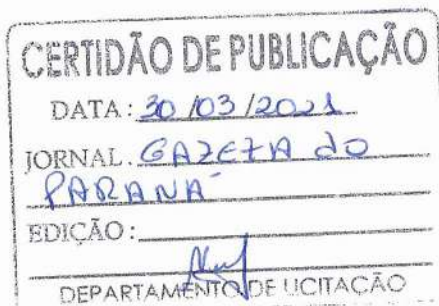 CERTIDÃO DE PUBLICAÇÃO
DATA: 30/03/2021
JORNAL. GAZETA do
PARANÁ
EDIÇÃO:
DEPARTAMENTO DE LICITAÇÃO